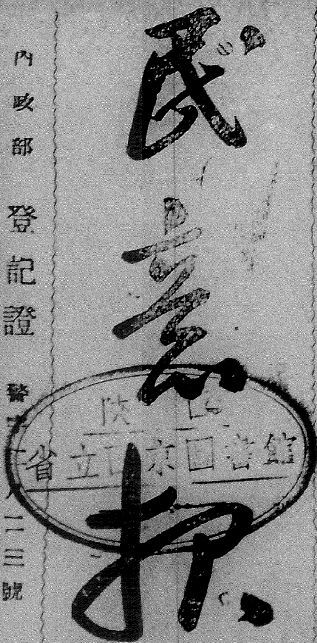 民意报
內政部 登記證 警字 二三號
陝西
省立西京圖書館